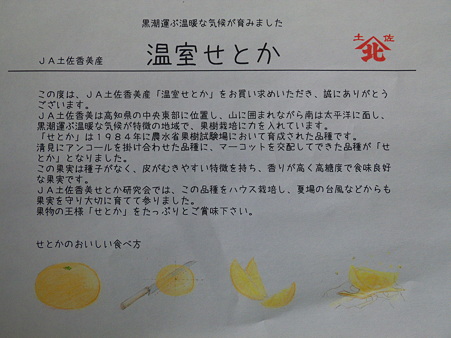 黒潮運ぶ温暖な気候が育みました
ＪＡ土佐香美産 温室せとか
土佐
北
この度は、ＪＡ土佐香美産「温室せとか」をお買い求めいただき、誠にありがとう
ございます。
ＪＡ土佐香美は高知県の中央東部に位置し、山に囲まれながら南は太平洋に面し、
黒潮運ぶ温暖な気候が特徴の地域で、果樹栽培に力を入れています。
「せとか」は１９８４年に農水省果樹試験場において育成された品種です。
清見にアンコールを掛け合わせた品種に、マーコットを交配してできた品種が「せ
とか」となりました。
この果実は種子がなく、皮がむきやすい特徴を持ち、香りが高く高糖度で食味良好
な果実です。
ＪＡ土佐香美せとか研究会では、この品種をハウス栽培し、夏場の台風などからも
果実を守り大切に育てて参りました。
果物の王様「せとか」をたっぷりとご賞味下さい。
せとかのおいしい食べ方